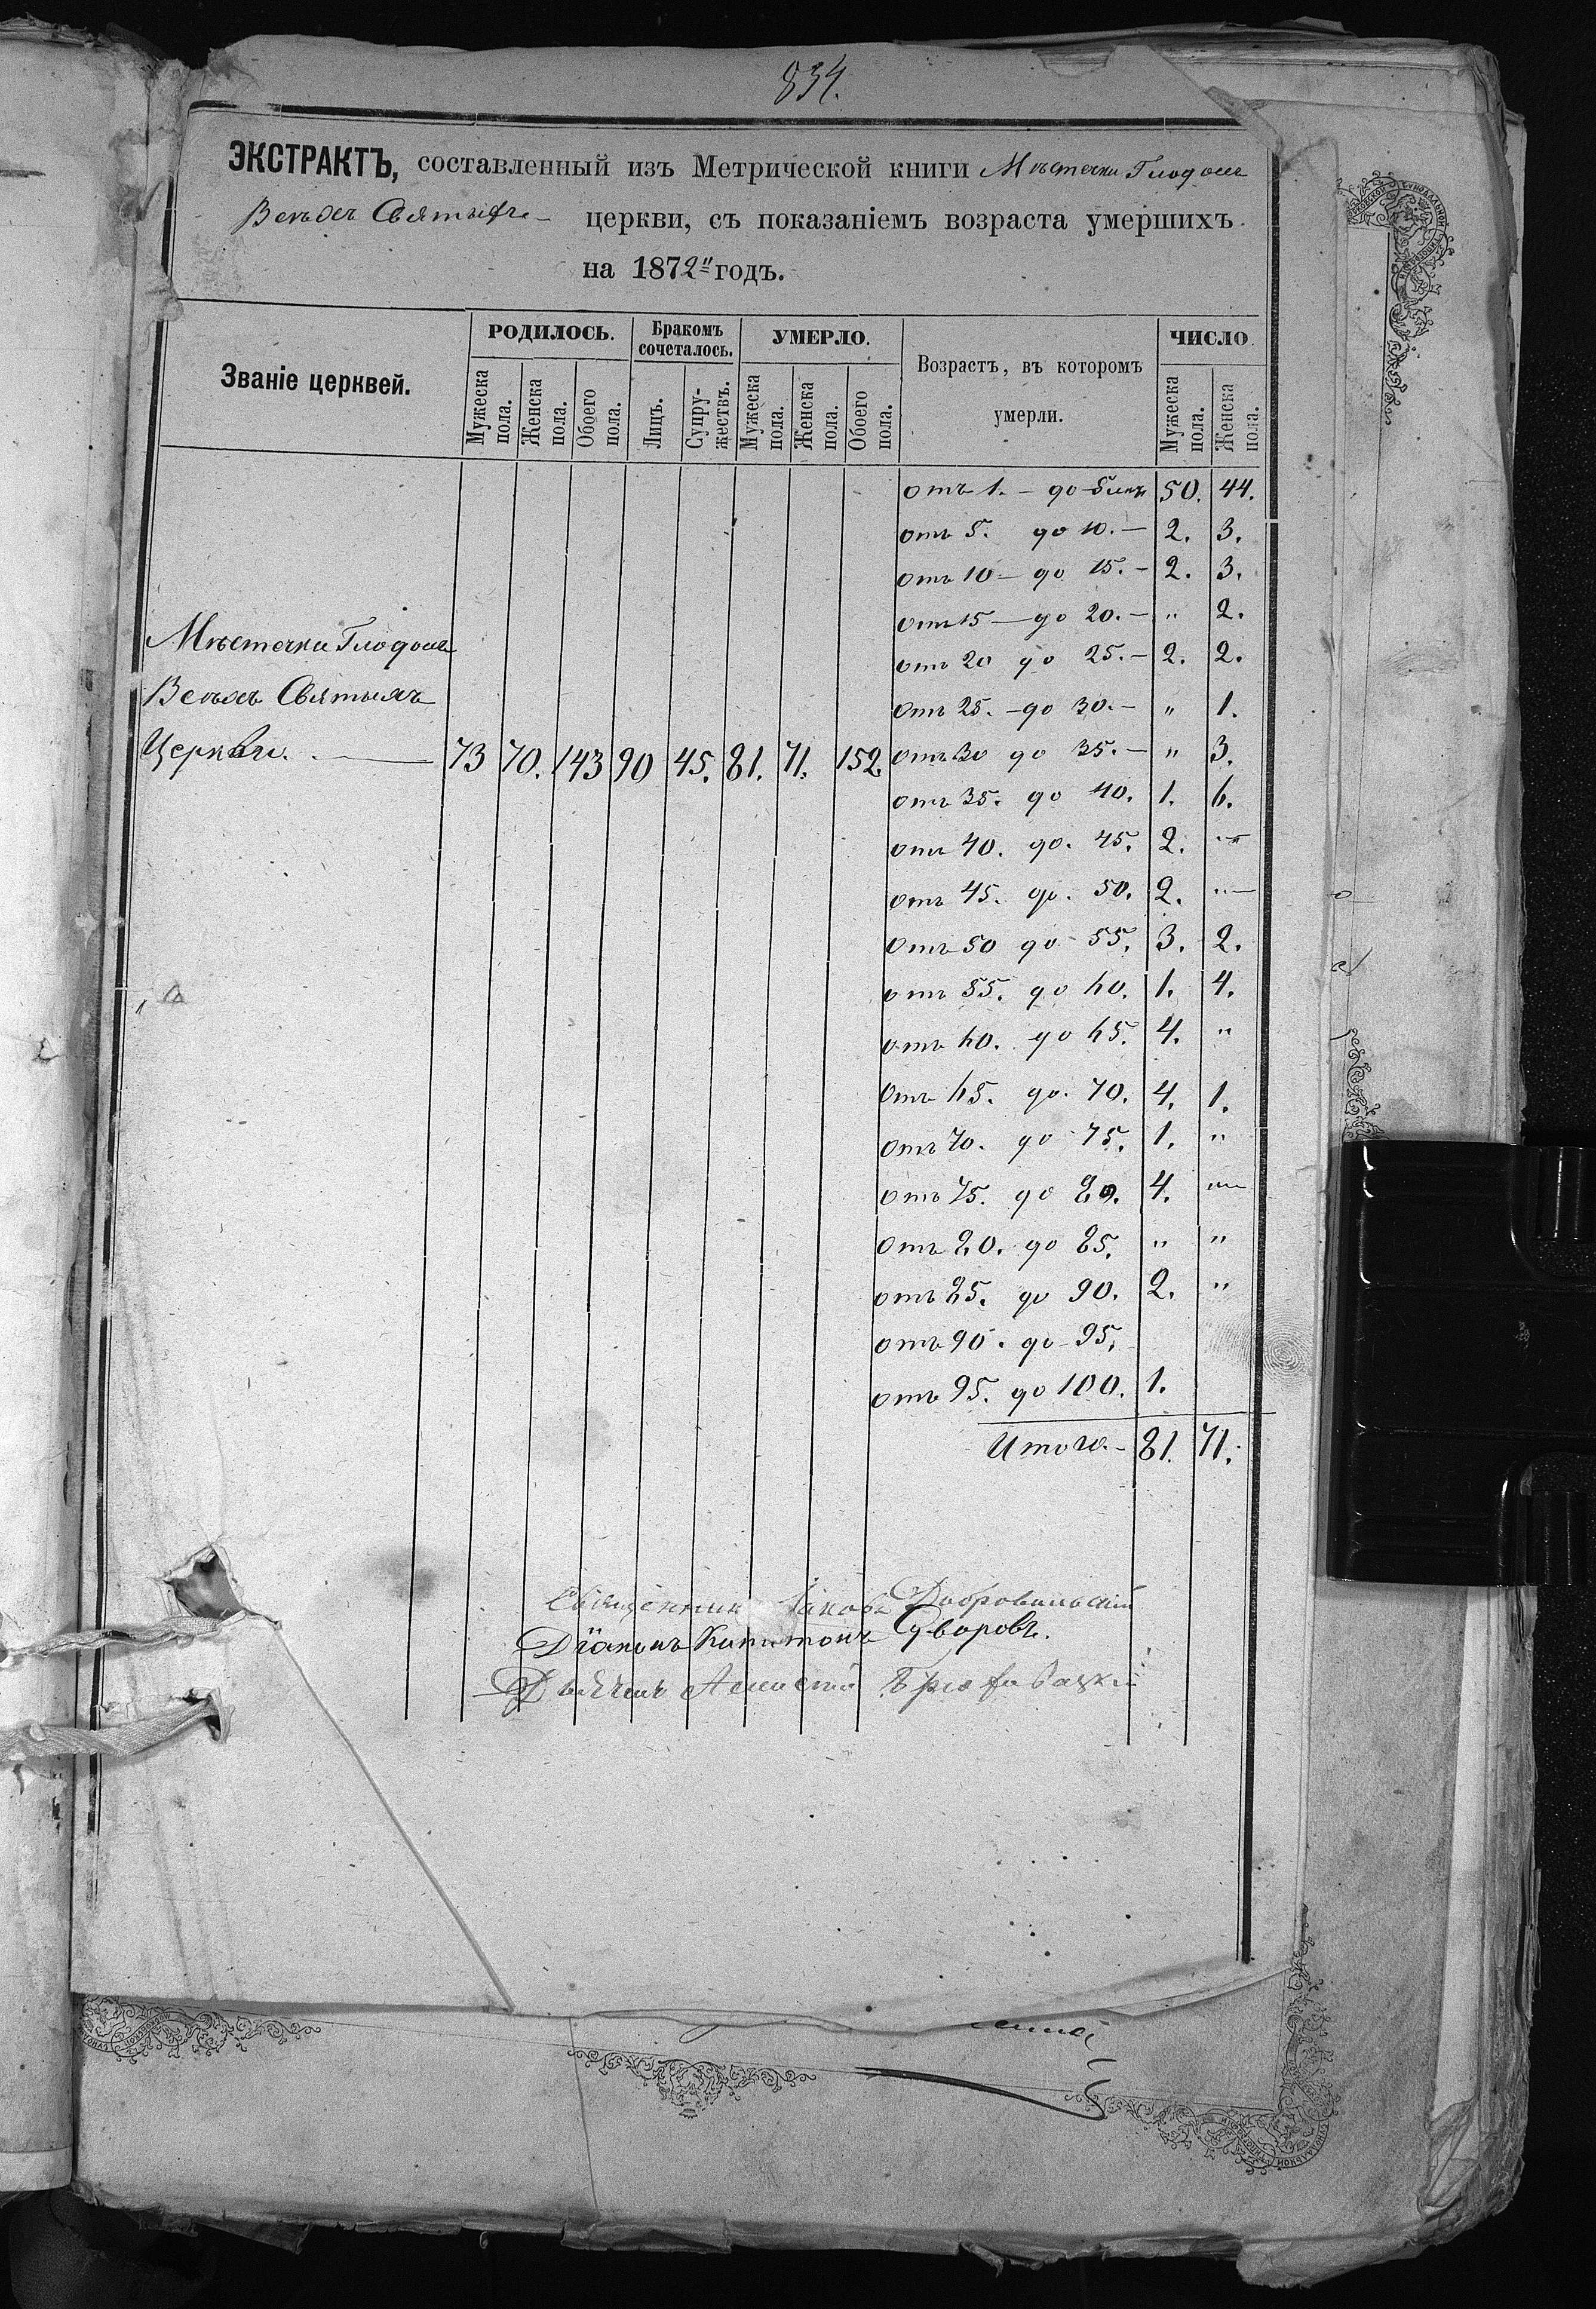 834.
ЭКСТРАКТЪ, составленный изъ Метрической книги Мѣстечки Глодосъ
Всѣхъ Святыхъ церкви, съ показаніемъ возраста умершихъ
на 1872 годъ.
Званіе церквей.
РОДИЛОСЬ. Бракомъ сочеталось. УМЕРЛО. Возрастъ, въ которомъ умерли. ЧИСЛО
Мужеска пола. Женска пола. Обоего пола. Лицъ. Супружествъ. Мужеска пола. Женска пола. Обоего пола. Мужеска пола. Женска пола.
отъ 1. — до 5 лѣтъ 50. 44.
отъ 5. до 10. — 2. 3.
отъ 10 — до 15. — 2. 3.
отъ 15 — до 20. — " 2.
Мѣстечки Глодосъ
отъ 20 до 25. — 2. 2.
Всѣхъ Святыхъ
отъ 25. — до 30. — " 1.
Церкви. — 73 70. 143 90 45. 81. 71. 152. отъ 30 до 35. — " 3.
отъ 35. до 40. 1. 6.
отъ 40. до. 45. 2. "
отъ 45. до. 50. 2. "
отъ 50 до 55. 3. 2.
отъ 55. до 60. 1. 4.
отъ 60. до 65. 4. "
отъ 65. до. 70. 4. 1.
отъ 70. до 75. 1. "
отъ 75. до 80. 4. "
отъ 80. до 85. " "
отъ 85. до 90. 2. "
отъ 90. до 95.
отъ 95. до 100. 1.
Итого. — 81. 71.
Священникъ Іаковъ Добровольскій
Діаконъ Капитонъ Суворовъ.